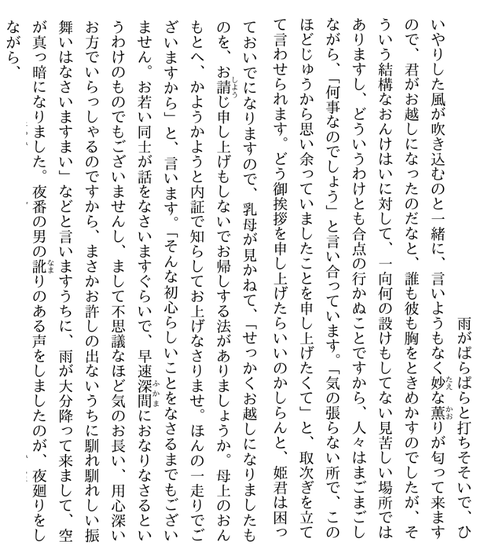 雨がばらばらと打ちそそいで、ひ
いやりした風が吹き込むのと一緒に、言いようもなく妙な薫りが匂って来ます
ので、君がお越しになったのだなと、誰も彼も胸をときめかすのでしたが、そ
ういう結構なおんけはいに対して、一向何の設けもしてない見苦しい場所では
ありますし、どういうわけとも合点の行かぬことですから、人々はまごまごし
ながら、「何事なのでしょう」と言い合っています。「気の張らない所で、この
ほどじゅうから思い余っていましたことを申し上げたくて」と、取次ぎを立て
て言わせられます。どう御挨拶を申し上げたらいいのかしらんと、姫君は困っ
ておいでになりますので、乳母が見かねて、「せっかくお越しになりましたも
のを、お請じ申し上げもしないでお帰しする法がありましょうか。母上のおん
もとへ、かようかようと内証で知らしてお上げなさりませ。ほんの一走りでご
ざいますから」と、言います。「そんな初心らしいことをなさるまでもござい
ません。お若い同士が話をなさいますぐらいで、早速深間におなりなさるとい
うわけのものでもございませんし、まして不思議なほど気のお長い、用心深い
お方でいらっしゃるのですから、まさかお許しの出ないうちに馴れ馴れしい振
舞いはなさいますまい」などと言いますうちに、雨が大分降って来まして、空
が真っ暗になりました。夜番の男の訛りのある声をしましたのが、夜廻りをし
ながら、